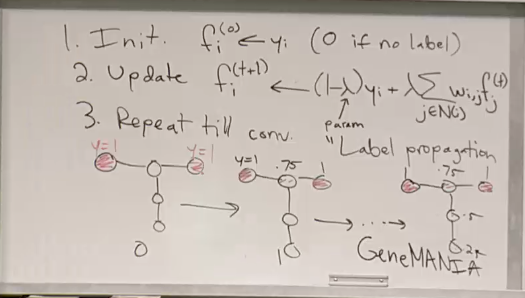 1. Init. f_i^(0) ← y_i (0 if no label)
2. Update f_i^(t+1) ← (1-λ)y_i + λ∑_{j∈N(i)} w_{i,j} f_j^(t)
param
3. Repeat till conv.
"Label propagation
y=1 y=1 y=1 .75 1 1 .75 1
.5
0 1
GeneMANIA